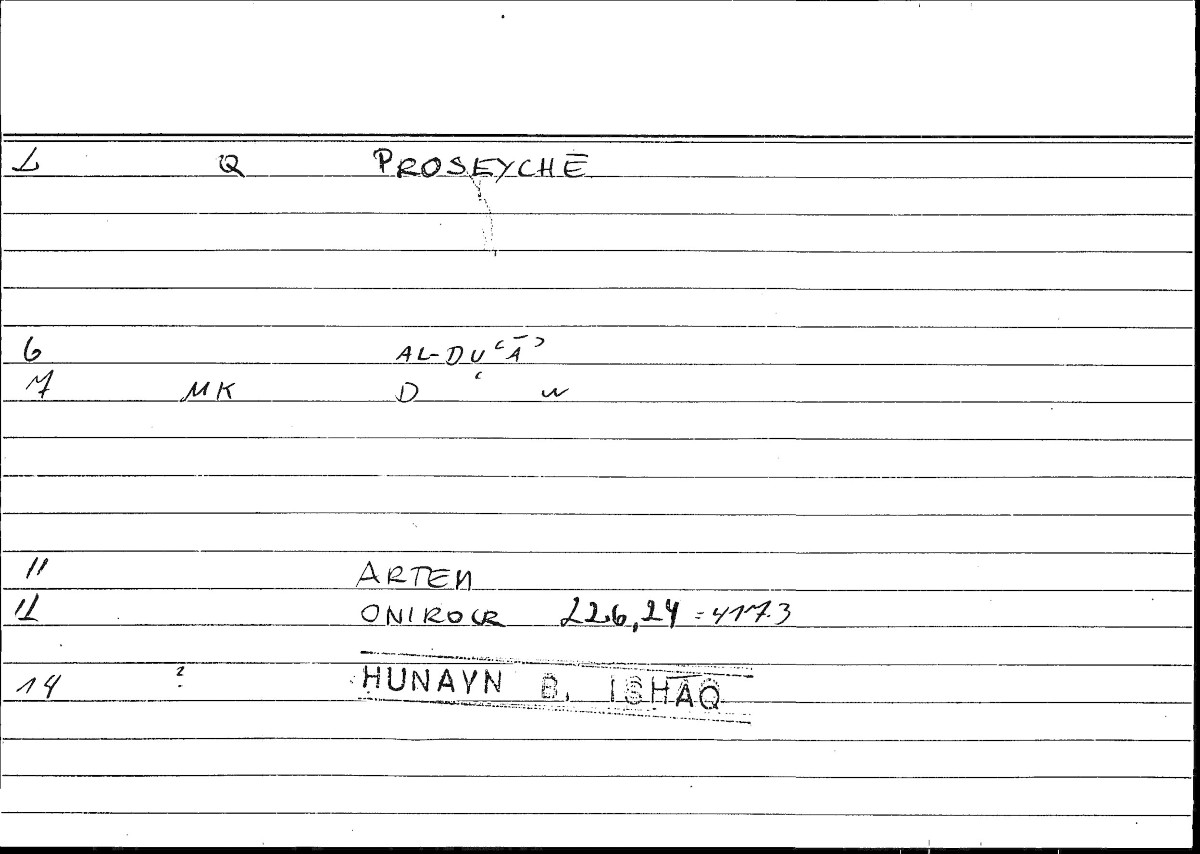 1 Q PROSEYCHĒ
6 AL-DUʿĀʾ
7 MK D ʿ w
11 ARTEM
12 ONIROCR 226,24 = 417.3
14 ? ḤUNAYN B. ISḤĀQ